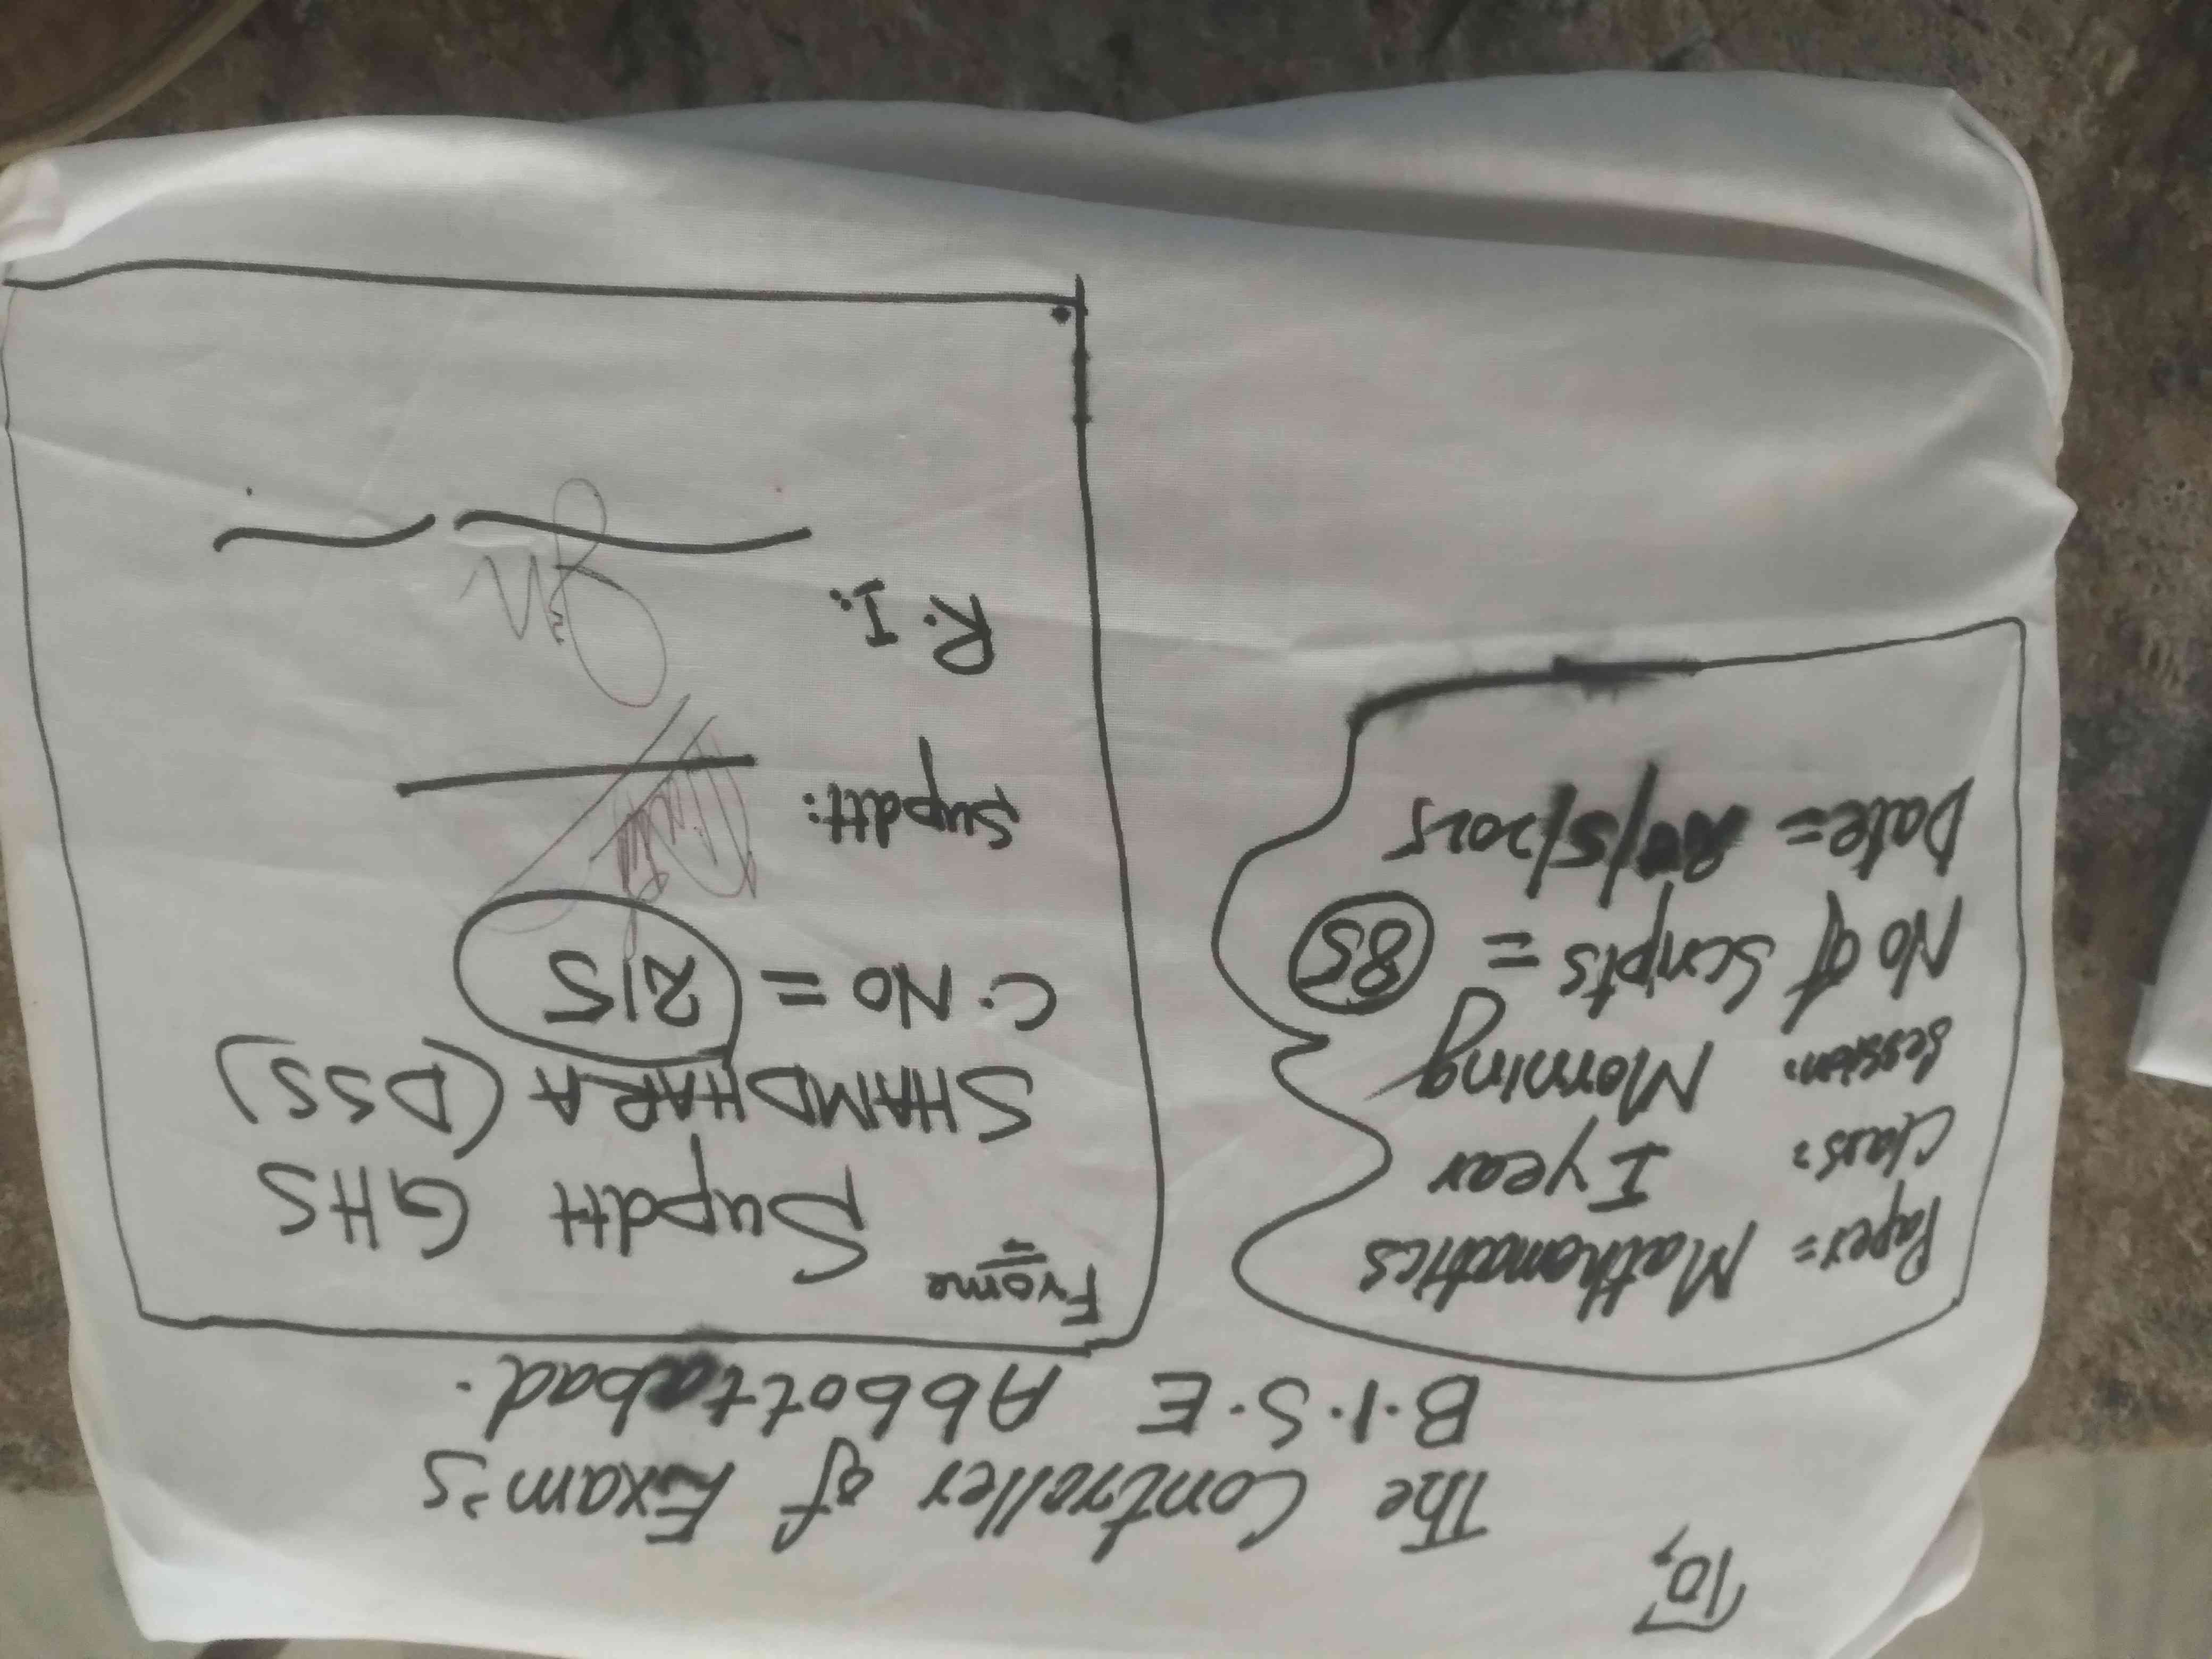 To,
The Controller of Exam's
B.I.S.E Abbottabad.
Paper = Mathematics
Class: I year
Session: Morning
No of Scripts = 85
Date = /5/2025
Frome
Supdtt GHS
SHAMDHARA (DSS)
C. No = 215
Supdtt:
R. I: